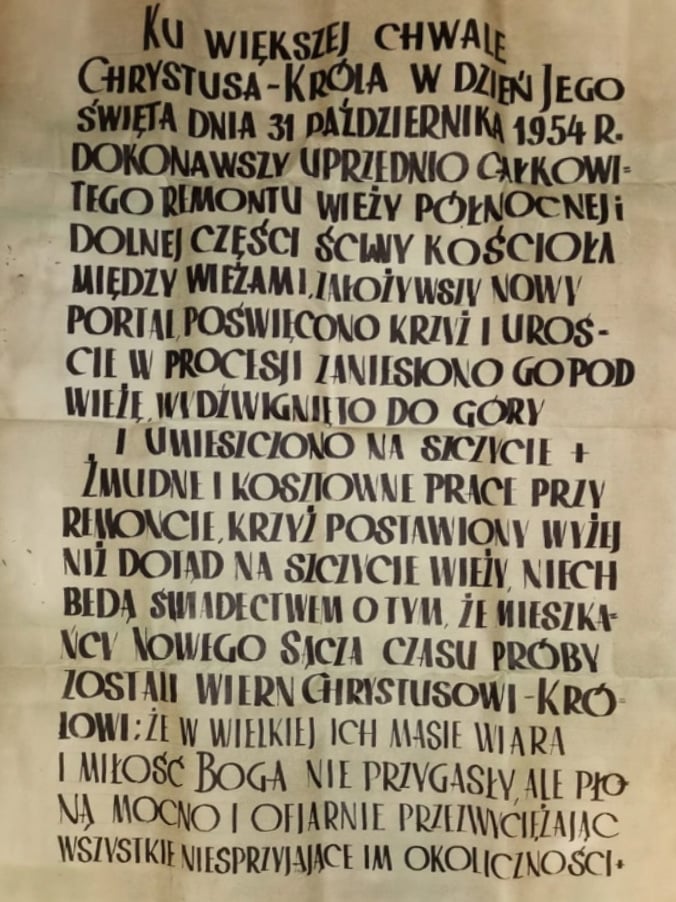 KU WIĘKSZEJ CHWALE
CHRYSTUSA-KRÓLA W DZIEŃ JEGO
ŚWIĘTA DNIA 31 PAŹDZIERNIKA 1954 R.
DOKONAWSZY UPRZEDNIO CAŁKOWI=
TEGO REMONTU WIEŻY PÓŁNOCNEJ i
DOLNEJ CZĘŚCI ŚCIANY KOŚCIOŁA
MIĘDZY WIEŻAMI, ZAŁOŻYWSZY NOWY
PORTAL, POŚWIĘCONO KRZYŻ I UROŚ-
CIE W PROCESJI ZANIESIONO GO POD
WIEŻĘ, WYDŹWIGNIĘTO DO GÓRY
I UMIESZCZONO NA SZCZYCIE +
ŻMUDNE I KOSZTOWNE PRACE PRZY
REMONCIE, KRZYŻ POSTAWIONY WYŻEJ
NIŻ DOTĄD NA SZCZYCIE WIEŻY, NIECH
BEDĄ ŚWIADECTWEM O TYM, ŻE MIESZKA-
ŃCY NOWEGO SĄCZA CZASU PRÓBY
ZOSTALI WIERNI CHRYSTUSOWI-KRÓ-
LOWI: ŻE W WIELKIEJ ICH MASIE WIARA
I MIŁOŚĆ BOGA NIE PRZYGASŁY, ALE PŁO-
NĄ MOCNO I OFIARNIE PRZEZWYCIĘŻAJĄC
WSZYSTKIE NIESPRZYJAJĄCE IM OKOLICZNOŚCI+